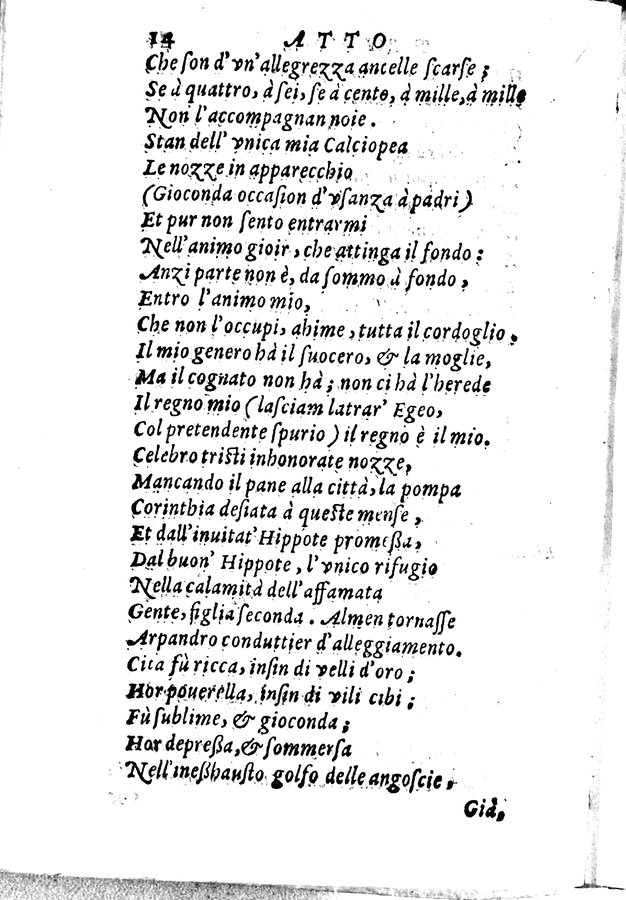 14 ATTO
Che son d'vn'allegrezza ancelle scarse;
Se à quattro, à sei, se à cento, à mille, à mille
Non l'accompagnan noie.
Stan dell' vnica mia Calciopea
Le nozze in apparecchio
(Gioconda occasion d'vsanza à padri)
Et pur non sento entrarmi
Nell'animo gioir, che attinga il fondo:
Anzi parte non è, da sommo à fondo,
Entro l'animo mio,
Che non l'occupi, ahime, tutta il cordoglio.
Il mio genero hà il suocero, & la moglie,
Ma il cognato non hà; non ci hà l'herede
Il regno mio (lasciam latrar' Egeo,
Col pretendente spurio) il regno è il mio.
Celebro tristi inhonorate nozze,
Mancando il pane alla città, la pompa
Corinthia desiata à queste mense,
Et dall'inuitat' Hippote promessa,
Dal buon' Hippote, l'vnico rifugio
Nella calamità dell'affamata
Gente, figlia seconda. Almen tornasse
Arpandro conduttier d'alleggiamento.
Cita fù ricca, insin di velli d'oro;
Hor pouerella, insin di vili cibi;
Fù sublime, & gioconda;
Hor depressa, & sommersa
Nell'inesshausto golfo delle angoscie,
Già,